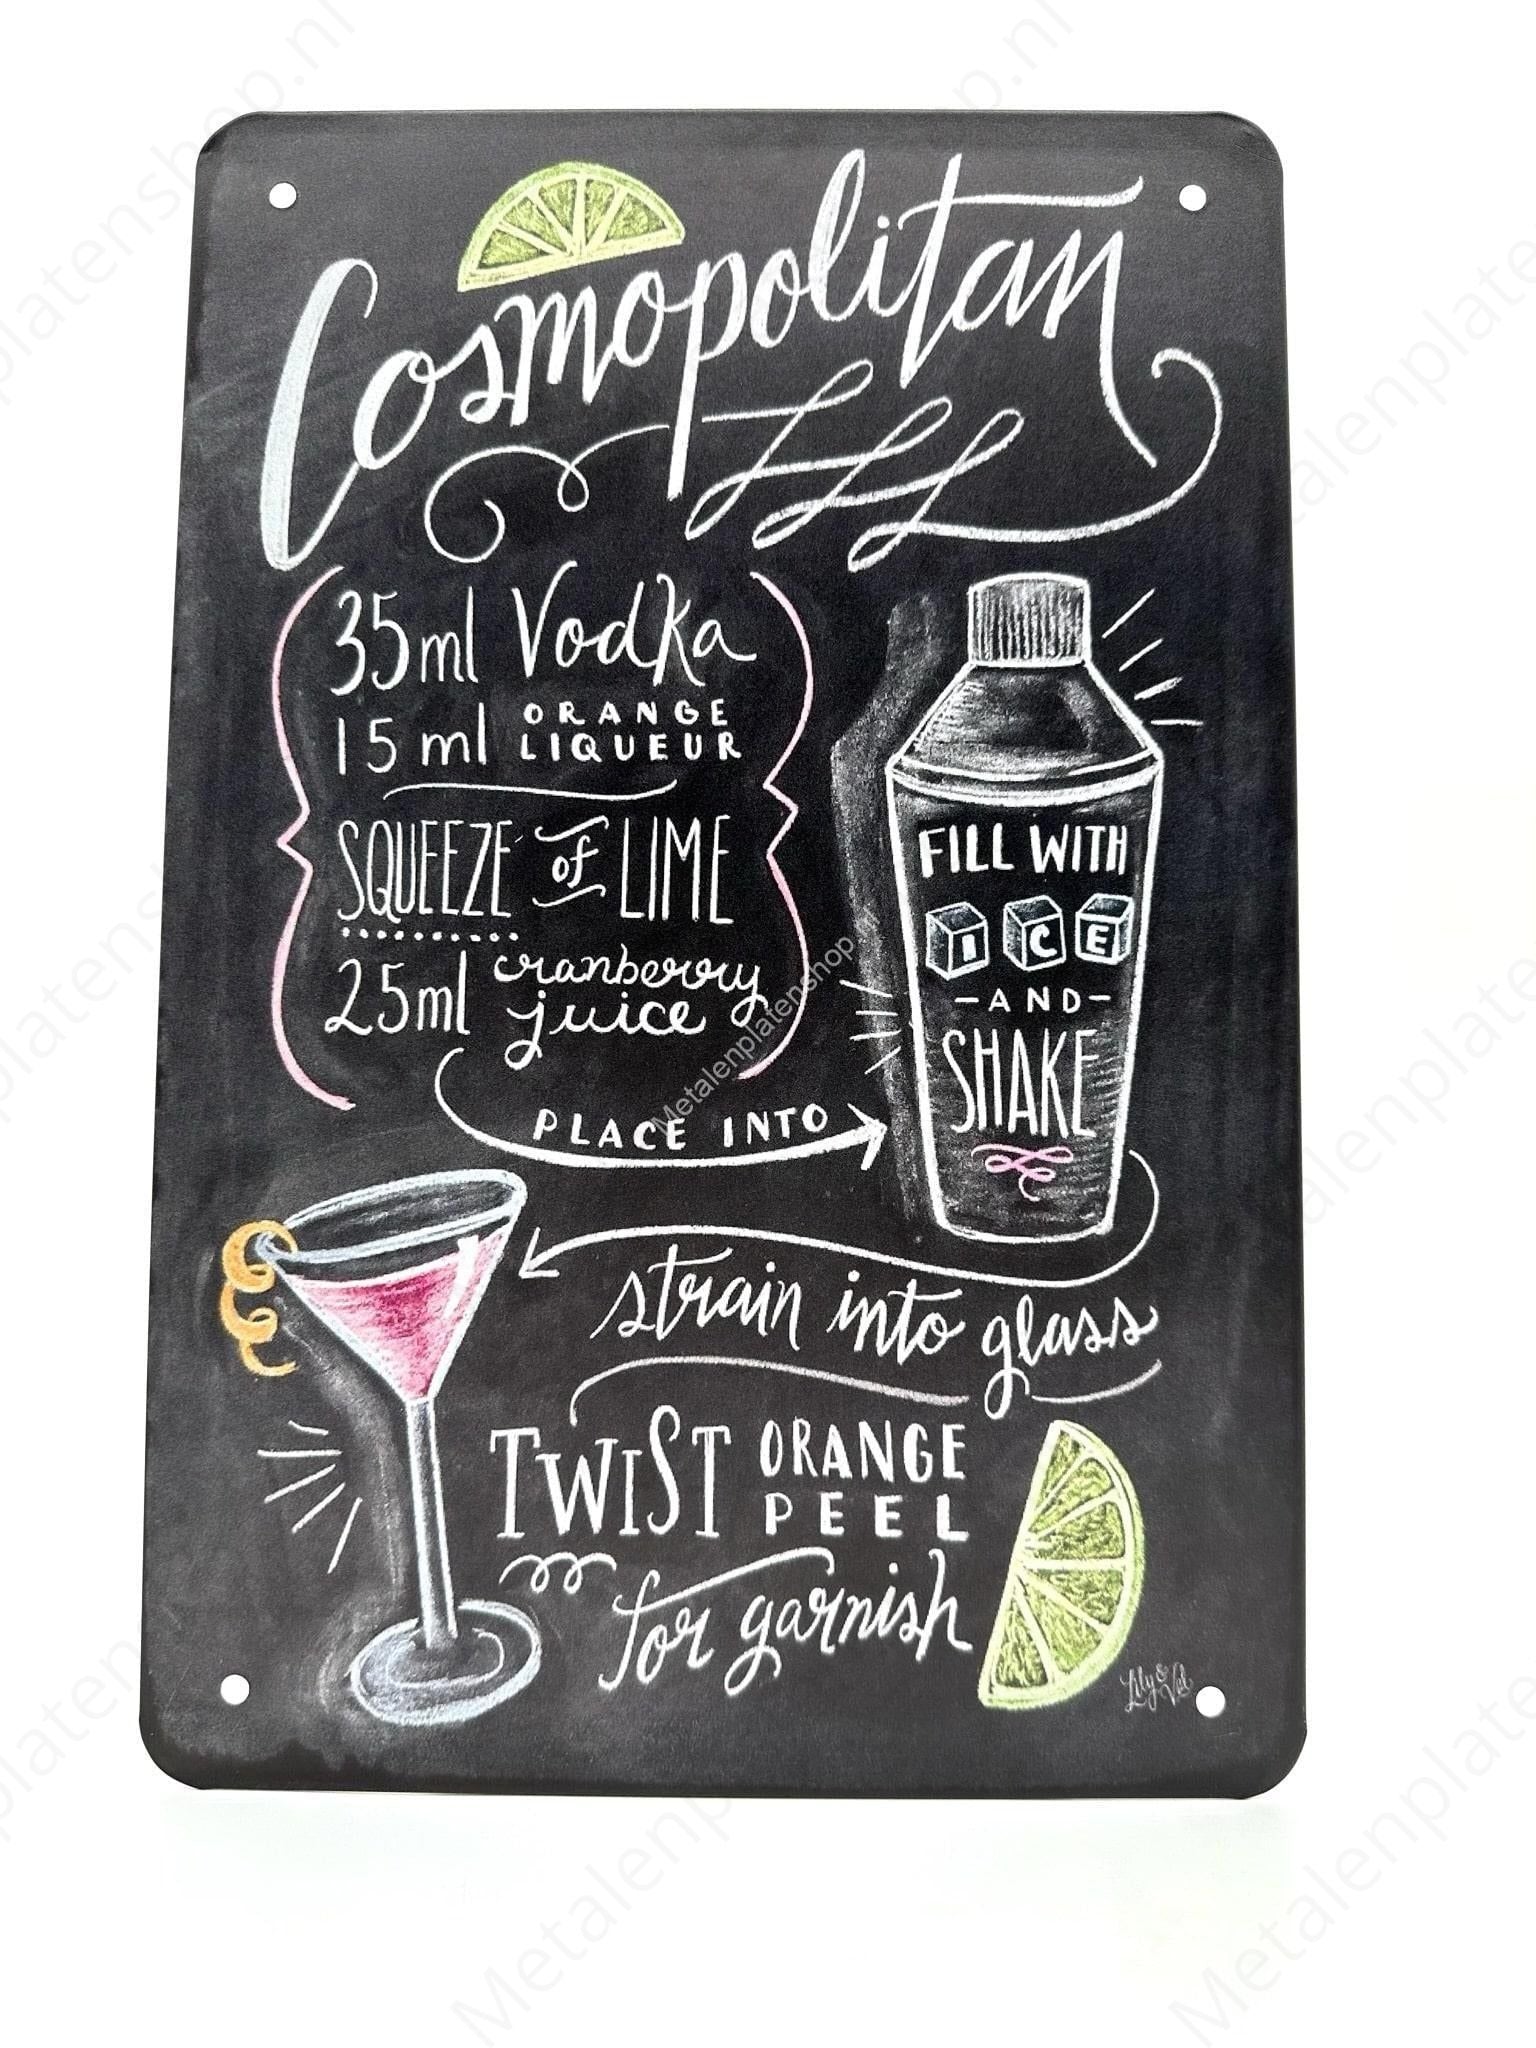 Cosmopolitan
35ml Vodka
15 ml ORANGE
LIQUEUR
SQUEEZE of LIME
25ml cranberry
juice
PLACE INTO
FILL WITH
ICE
-AND-
SHAKE
strain into glass
TWIST ORANGE
PEEL
for garnish
Lily & Val
Metalenplatenshop.nl
Metalenplatenshop.nl
Metalenplatenshop.nl